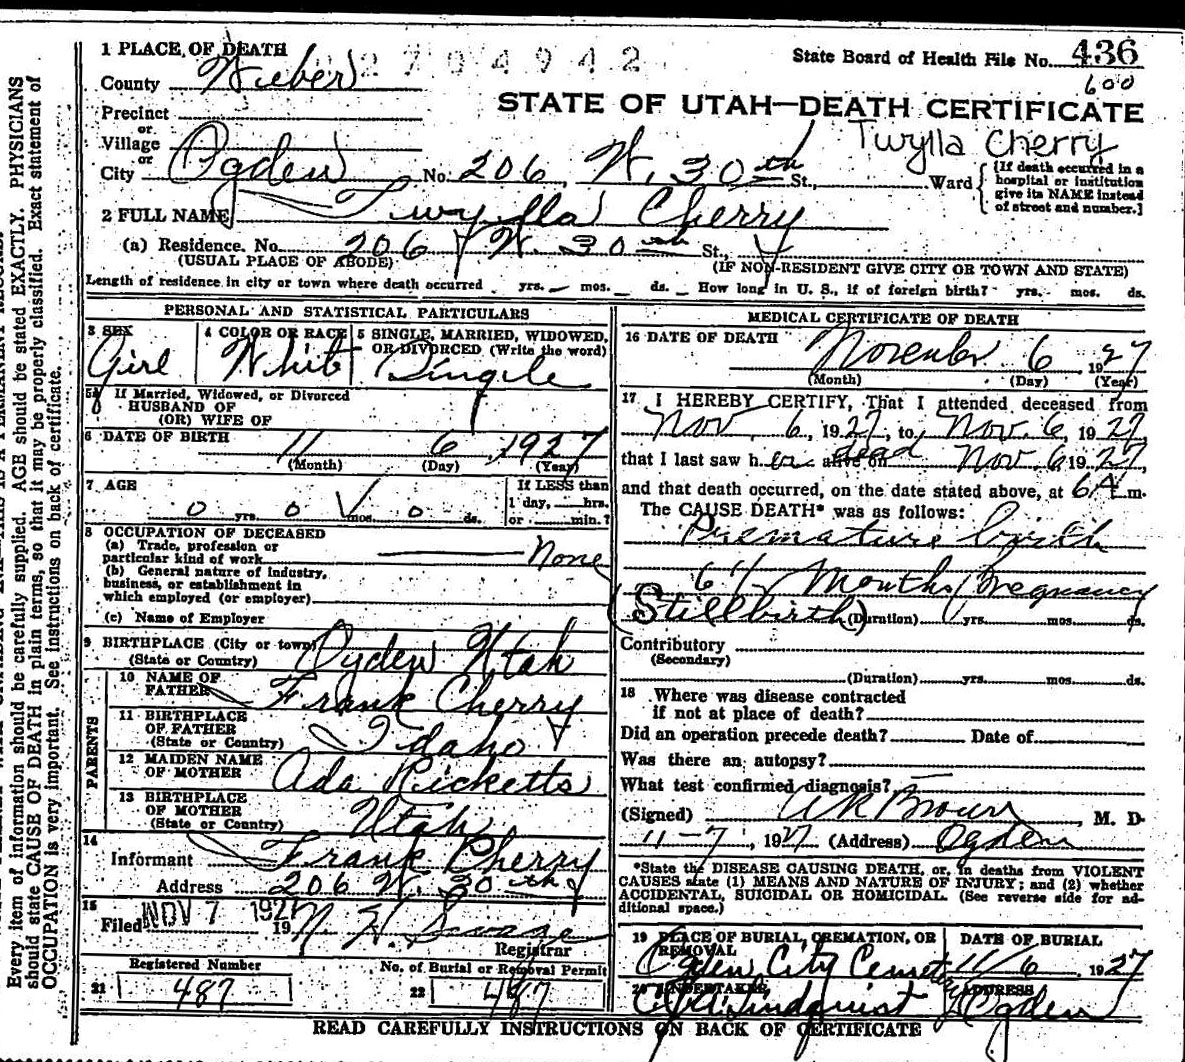 1 PLACE OF DEATH
2704942
State Board of Health File No. 436
600
County Weber
STATE OF UTAH—DEATH CERTIFICATE
Precinct
or
Village
Twylla Cherry
or
City Ogden No. 206 W. 30th St., Ward
{[If death occurred in a
hospital or institution
give its NAME instead
of street and number.]
2 FULL NAME Twylla Cherry
(a) Residence. No. 206 W. 30th St.,
(USUAL PLACE OF ABODE)
(IF NON-RESIDENT GIVE CITY OR TOWN AND STATE)
Length of residence in city or town where death occurred yrs. — mos. — ds. — How long in U. S., if of foreign birth? yrs. mos. ds.
PERSONAL AND STATISTICAL PARTICULARS
3 SEX
Girl
4 COLOR OR RACE
White
5 SINGLE, MARRIED, WIDOWED,
OR DIVORCED (Write the word)
Single
5a If Married, Widowed, or Divorced
HUSBAND OF
(OR) WIFE OF
6 DATE OF BIRTH 11 6 1927
(Month) (Day) (Year)
7 AGE
0 yrs. 0 mos. 0 ds.
If LESS than
1 day, hrs.
or min.?
8 OCCUPATION OF DECEASED
(a) Trade, profession or
particular kind of work None
(b) General nature of industry,
business, or establishment in
which employed (or employer)
(c) Name of Employer
9 BIRTHPLACE (City or town)
(State or Country) Ogden Utah
PARENTS
10 NAME OF
FATHER Frank Cherry
11 BIRTHPLACE
OF FATHER
(State or Country) Idaho
12 MAIDEN NAME
OF MOTHER Ada Ricketts
13 BIRTHPLACE
OF MOTHER
(State or Country) Utah
14
Informant Frank Cherry
Address 206 W. 30th
15
Filed NOV 7 192 19
Registrar
Registered Number
21 487
No. of Burial or Removal Permit
22 487
MEDICAL CERTIFICATE OF DEATH
16 DATE OF DEATH
November 6 1927
(Month) (Day) (Year)
17 I HEREBY CERTIFY, That I attended deceased from
Nov. 6, 1927, to Nov. 6, 1927
that I last saw her alive on dead Nov 6 1927,
and that death occurred, on the date stated above, at 6 A m.
The CAUSE DEATH* was as follows:
Premature birth
6 1/2 Months Pregnancy
(Stillbirth) (Duration) yrs. mos. ds.
Contributory
(Secondary)
(Duration) yrs. mos. ds.
18 Where was disease contracted
if not at place of death?
Did an operation precede death? Date of
Was there an autopsy?
What test confirmed diagnosis? —
(Signed) , M. D.
11-7, 1927 (Address) Ogden
*State the DISEASE CAUSING DEATH, or, in deaths from VIOLENT
CAUSES state (1) MEANS AND NATURE OF INJURY; and (2) whether
ACCIDENTAL, SUICIDAL OR HOMICIDAL. (See reverse side for ad-
ditional space.)
19 PLACE OF BURIAL, CREMATION, OR
REMOVAL
Ogden City Cemetery
DATE OF BURIAL
11/6, 1927
20 UNDERTAKER
Lindquist
ADDRESS
Ogden
READ CAREFULLY INSTRUCTIONS ON BACK OF CERTIFICATE
Every item of information should be carefully supplied. AGE should be stated EXACTLY. PHYSICIANS
should state CAUSE OF DEATH in plain terms, so that it may be properly classified. Exact statement of
OCCUPATION is very important. See instructions on back of certificate.